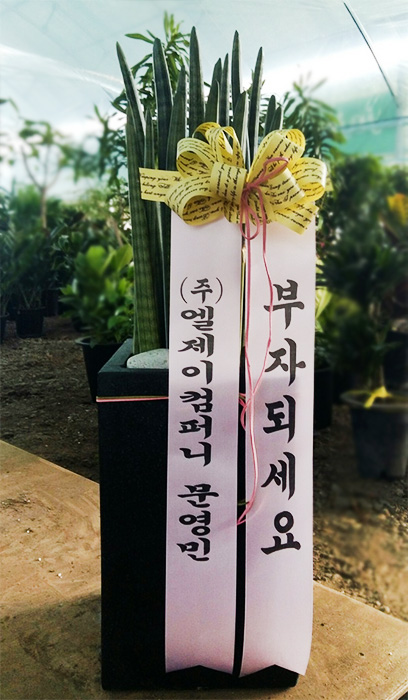 부자되세요
(주)엘제이컴퍼니 문영민